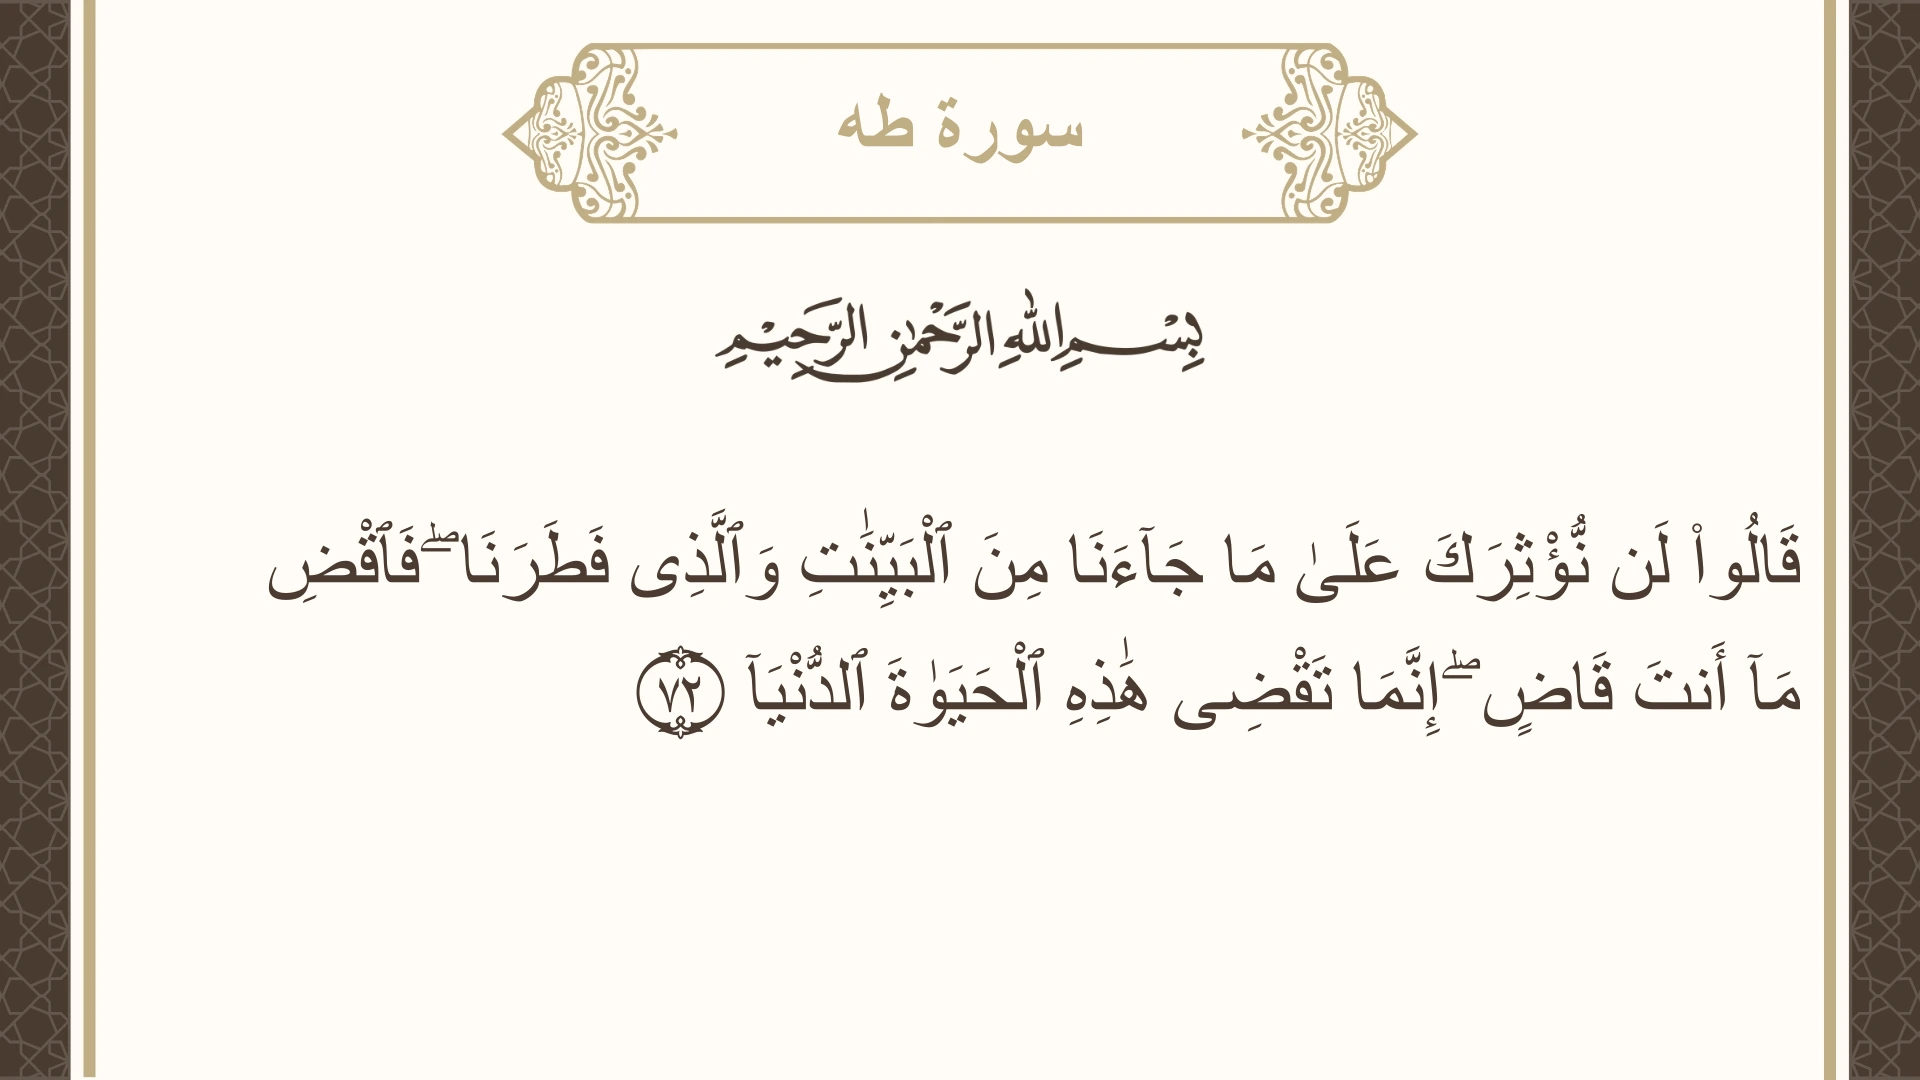 سورة طه
بِسْمِ اللهِ الرَّحْمٰنِ الرَّحِيْمِ
قَالُوا۟ لَن نُّؤْثِرَكَ عَلَىٰ مَا جَآءَنَا مِنَ ٱلْبَيِّنَـٰتِ وَٱلَّذِى فَطَرَنَا ۖ فَٱقْضِ
مَآ أَنتَ قَاضٍ ۖ إِنَّمَا تَقْضِى هَـٰذِهِ ٱلْحَيَوٰةَ ٱلدُّنْيَآ ٧٢